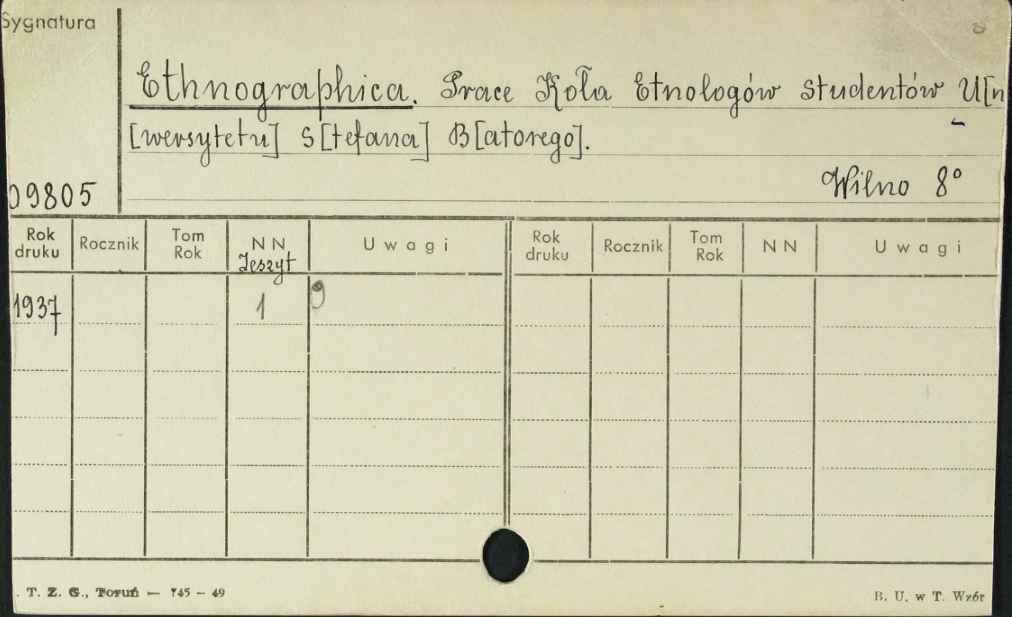 Sygnatura
Ethnographica. Prace Koła Etnologów studentów U[n
[wersytetu] S[tefana] B[atorego].
Wilno 8°
09805
Rok druku Rocznik Tom Rok NN Zeszyt Uwagi Rok druku Rocznik Tom Rok NN Uwagi
1937 1
. T. Z. G., Toruń — 745 - 49
B. U. w T. Wzór